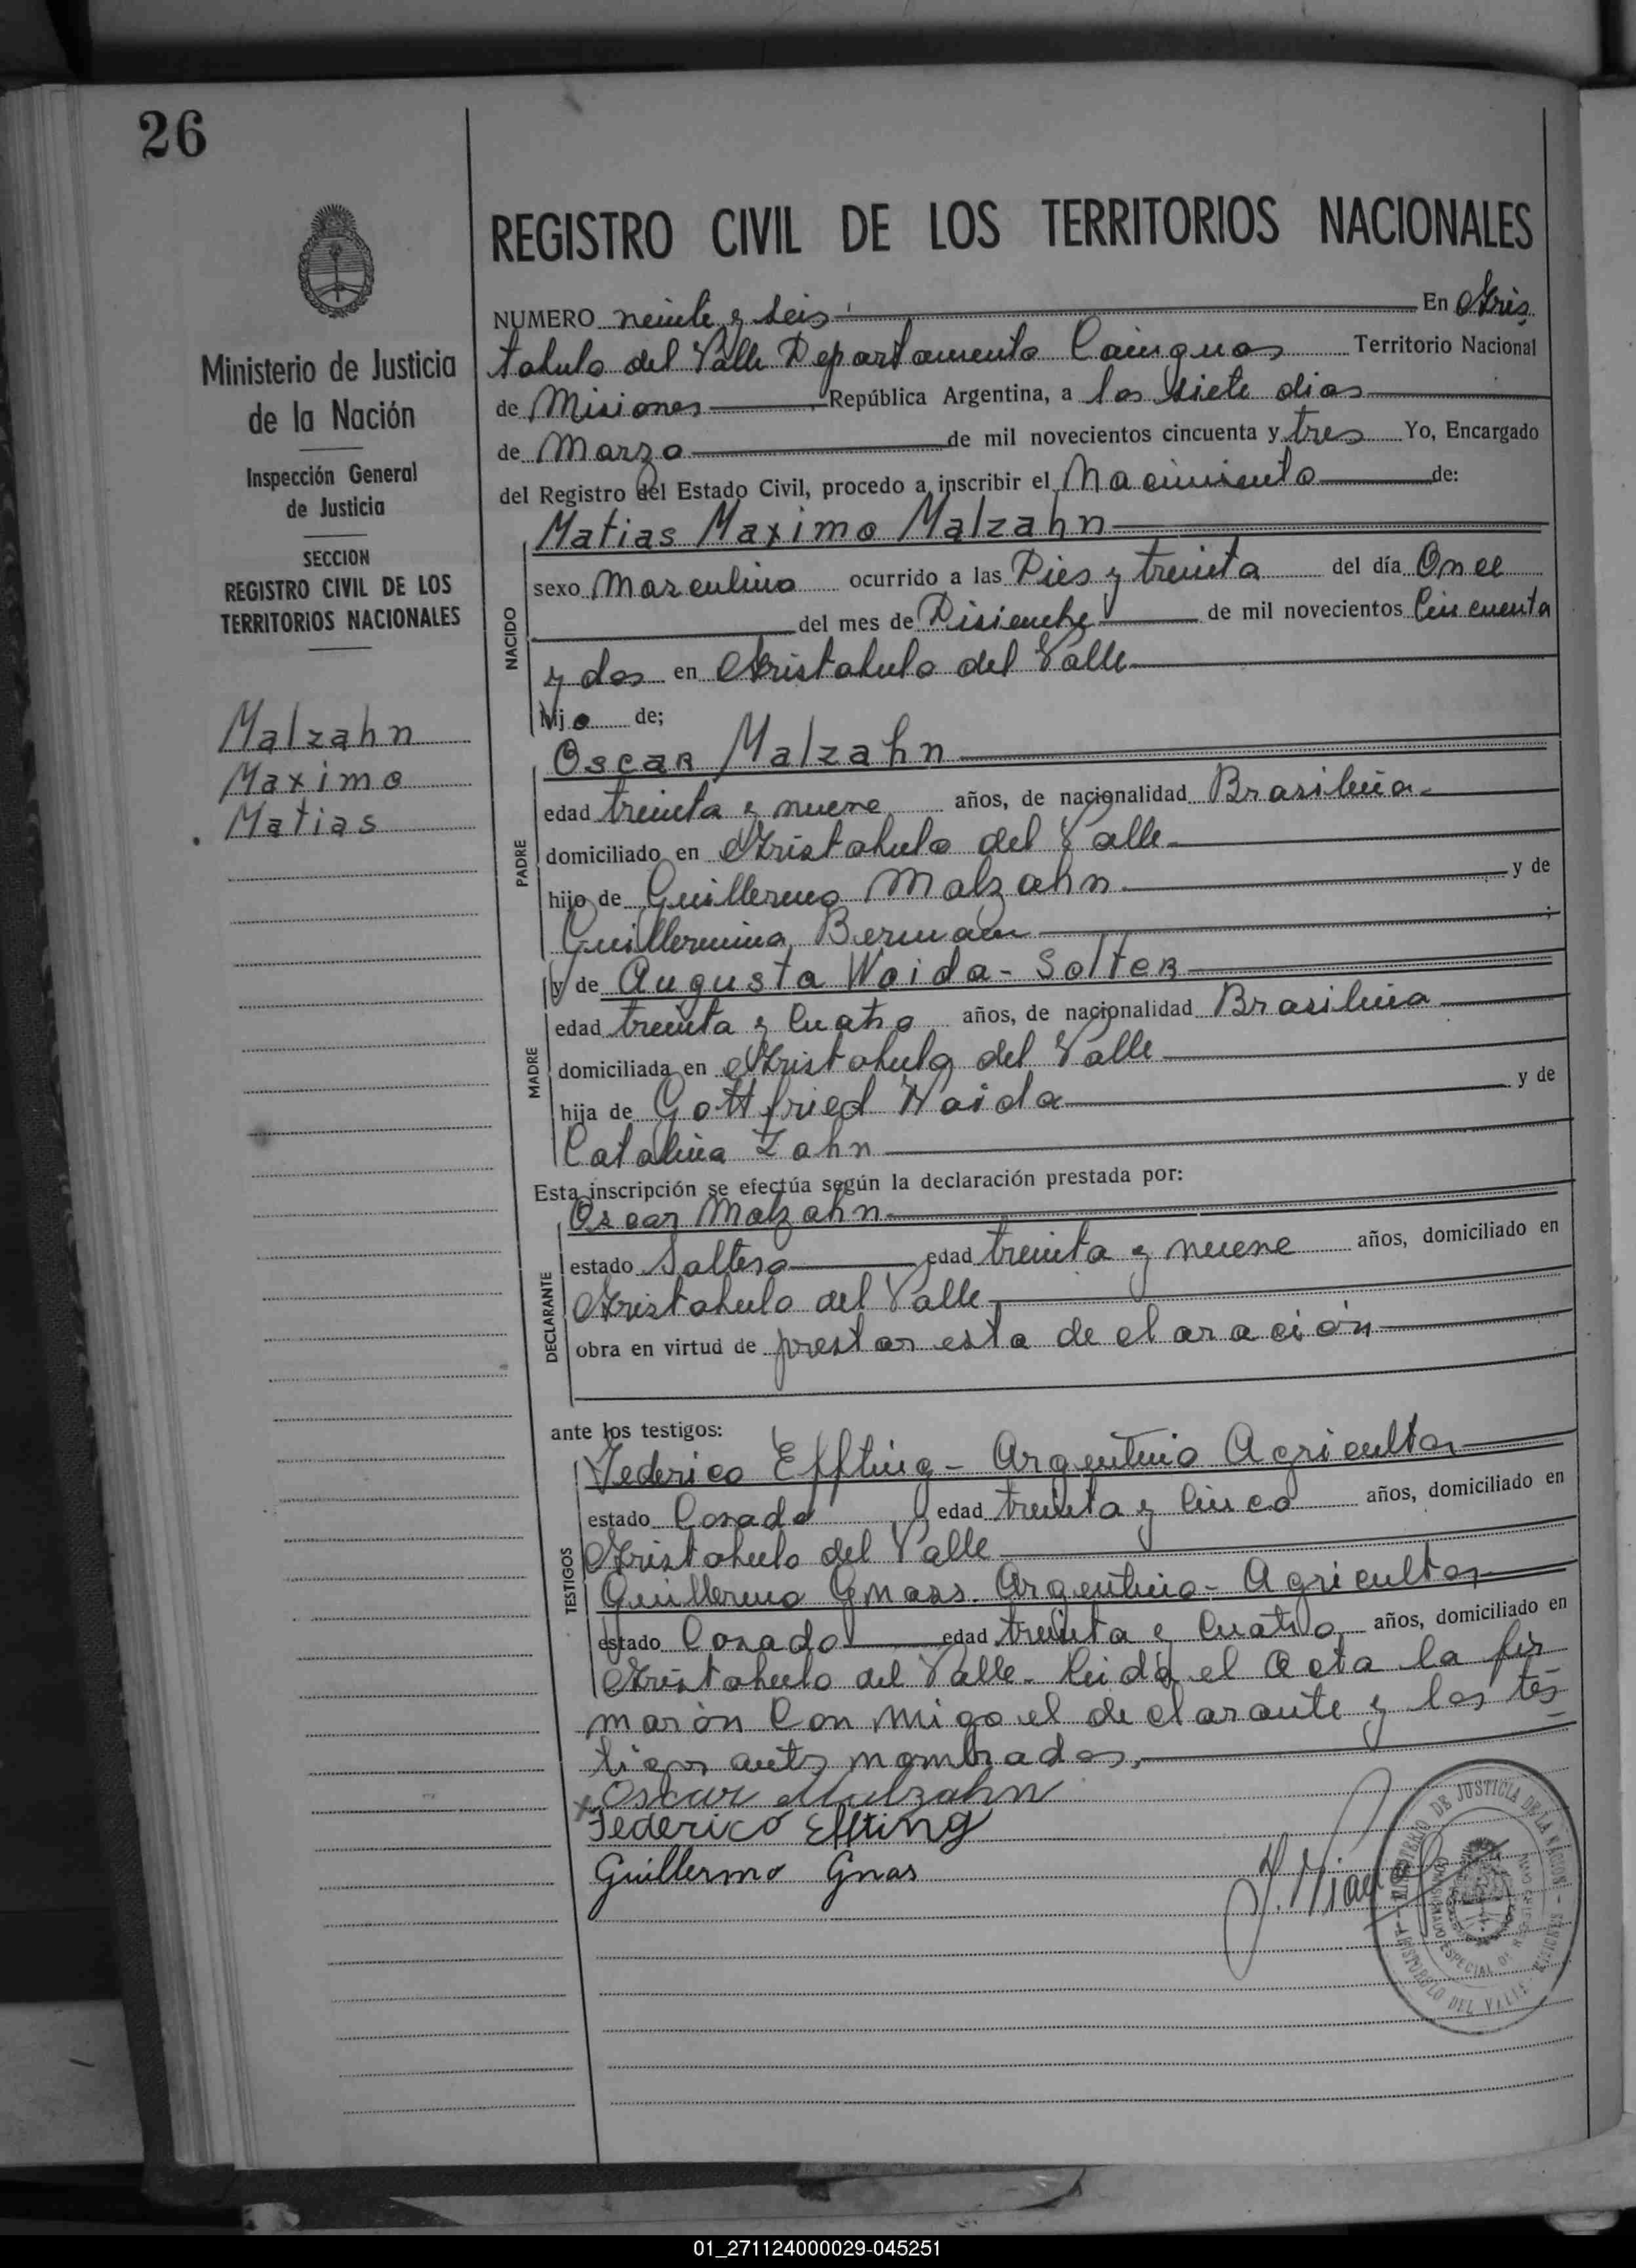 26
REGISTRO CIVIL DE LOS TERRITORIOS NACIONALES
Ministerio de Justicia
de la Nación
Inspección General
de Justicia
SECCION
REGISTRO CIVIL DE LOS
TERRITORIOS NACIONALES
Malzahn
Maximo
Matias
NUMERO veinte y seis En Aris
tobulo del Valle Departamento Cainguas Territorio Nacional
de Misiones República Argentina, a los siete dias
de Marzo de mil novecientos cincuenta y tres Yo, Encargado
del Registro del Estado Civil, procedo a inscribir el Nacimiento de:
NACIDO
Matias Maximo Malzahn
sexo Masculino ocurrido a las Dies y treinta del día Once
del mes de Disiembre de mil novecientos Cincuenta
y dos en Aristobulo del Valle
hijo de;
PADRE
Oscar Malzahn
edad treinta y nueve años, de nacionalidad Brasilina
domiciliado en Aristobulo del Valle
hijo de Guillermo Malzahn y de
Guillermina Berman
MADRE
y de Augusta Waida - Solter
edad treinta y Cuatro años, de nacionalidad Brasilina
domiciliada en Aristobulo del Valle
hija de Gottfried Waida y de
Catalina Zahn
Esta inscripción se efectúa según la declaración prestada por:
DECLARANTE
Oscar Malzahn
estado Soltero edad treinta y nueve años, domiciliado en
Aristobulo del Valle
obra en virtud de prestar esta declaración
ante los testigos:
TESTIGOS
Federico Effting - Argentino Agricultor
estado Casado edad treinta y Cinco años, domiciliado en
Aristobulo del Valle
Guillermo Gnass. Argentino - Agricultor
estado Casado edad treinta y Cuatro años, domiciliado en
Aristobulo del Valle - Leida el Acta la fir
marón Con migo el declarante y los tes
tigos antes nombrados.
Oscar Malzahn
Federico Effting
Guillermo Gnas
MINISTERIO DE JUSTICIA DE LA NACION - MISIONES
ARISTOBULO DEL VALLE
01_271124000029-045251